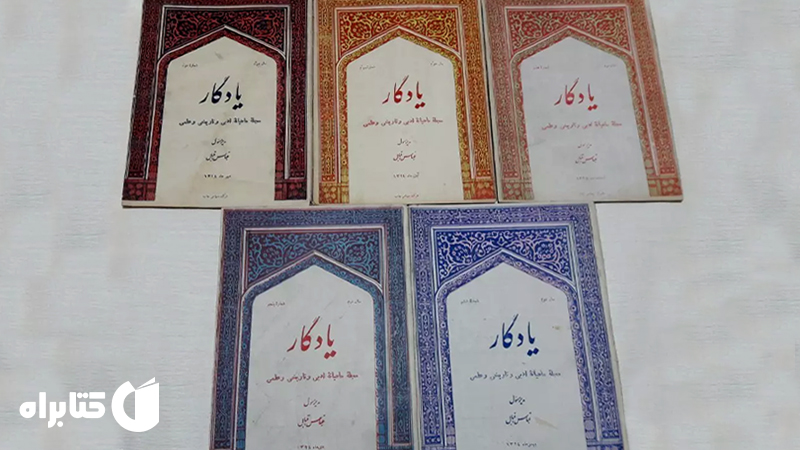 یادگار
مجلهٔ ماهیانهٔ ادبی و تاریخی و علمی
مدیر مسئول
عباس اقبال
یادگار
مجلهٔ ماهیانهٔ ادبی و تاریخی و علمی
مدیر مسئول
عباس اقبال
یادگار
مجلهٔ ماهیانهٔ ادبی و تاریخی و علمی
مدیر مسئول
عباس اقبال
یادگار
مجلهٔ ماهیانهٔ ادبی و تاریخی و علمی
مدیر مسئول
عباس اقبال
یادگار
مجلهٔ ماهیانهٔ ادبی و تاریخی و علمی
مدیر مسئول
عباس اقبال
کتابراه